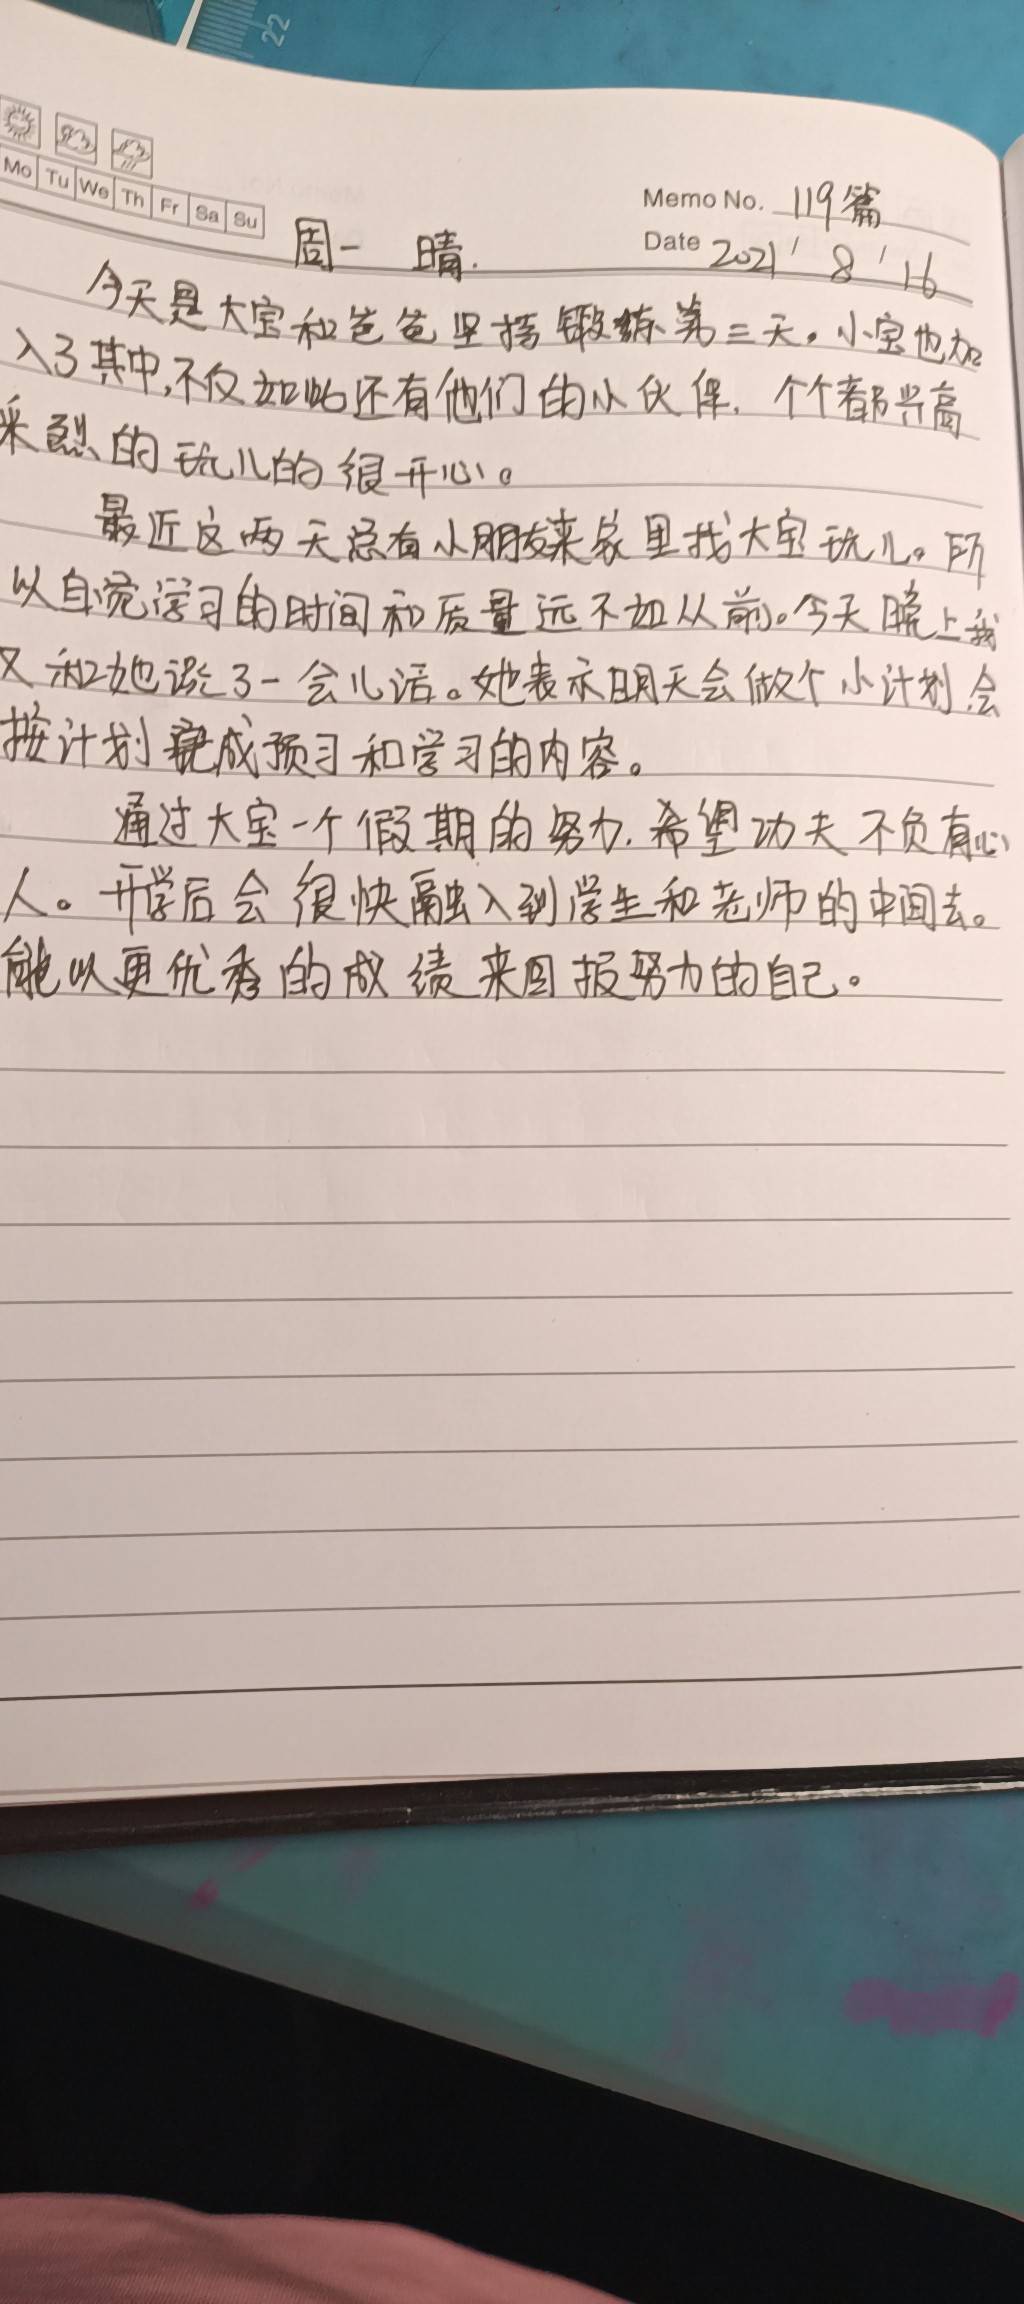 22
Mo Tu We Th Fr Sa Su
Memo No. 119篇
Date 2021' 8' 16
周一 晴.
今天是大宝和爸爸坚持锻练第三天。小宝也加
入了其中,不仅如此还有他们的小伙伴.个个都兴高
采烈的玩儿的很开心。
最近这两天总有小朋友来家里找大宝玩儿。所
以自觉学习的时间和质量远不如从前。今天晚上我
又和她谈了一会儿话。她表示明天会做个小计划.会
按计划完成预习和学习的内容。
通过大宝一个假期的努力.希望功夫不负有心
人。开学后会很快融入到学生和老师的中间去。
能以更优秀的成绩来回报努力的自己。